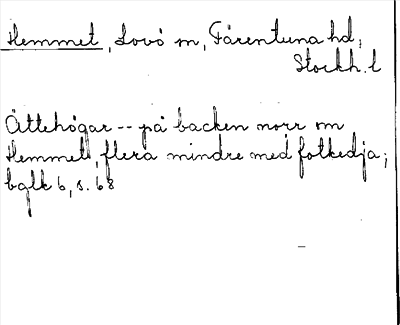 Hemmet, Lovö sn, Färentuna hd,
Stockh. l
Ättehögar -- på backen norr om
Hemmet, flera mindre med fotkedja;
bglk 6, s. 68